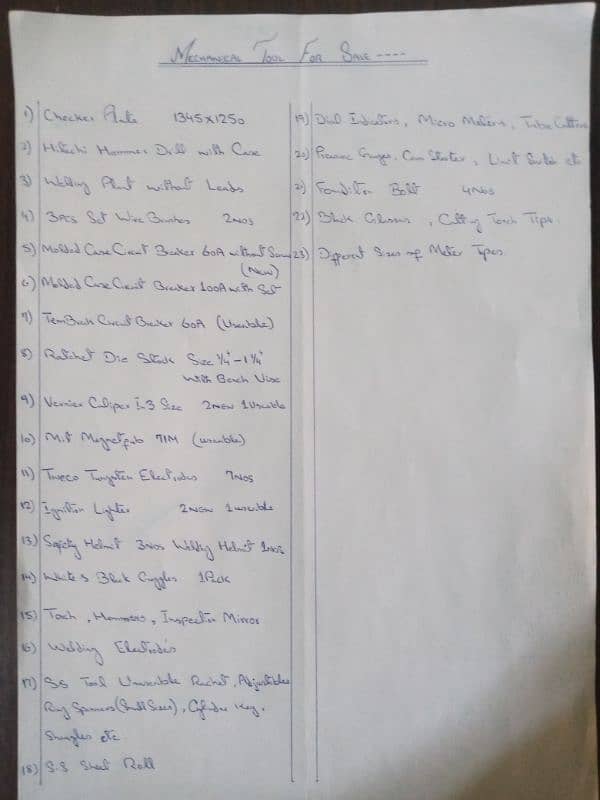 Mechanical Tool For Sale ----
1) Checker Plate 1345x1250
2) Hitachi Hammer Drill with Case
3) Welding Plant without Leads
4) 3Pcs Set Wire Brushes 2Nos
5) Molded Case Circuit Breaker 60A without
(New)
6) Molded Case Circuit Breaker 100A with Set
7) Circuit Breaker 60A (Useable)
8) Ratchet Die Stock Size ¼" – 1 ¼"
With Bench Vise
9) Vernier Caliper In 3 Size 2 new 1 Useable
10) M.T 71M (useable)
11) Tweco Tungsten Electrodes 7Nos
12) Ignition Lighter 2 New 1 useable
13) Safety Helmet 3Nos Welding Helmet 1Nos
14) White & Black Goggles 1Pack
15) Toch, Hammers, Inspection Mirror
16) Welding Electrodes
17) SS Tool Rachet, Adjustable
Ring Spanners (Small Sizes), Cylinder Key,
etc
18) S.S Sheet Roll
19) Dial Indicators, Micro Meters, Tube Cutters
20) Gauges, Cam Starter, Limit etc
21) Bolt 4Nos
22) Black Glasses, Cutting Torch Tips.
23) Different Sizes of Meter Tapes.